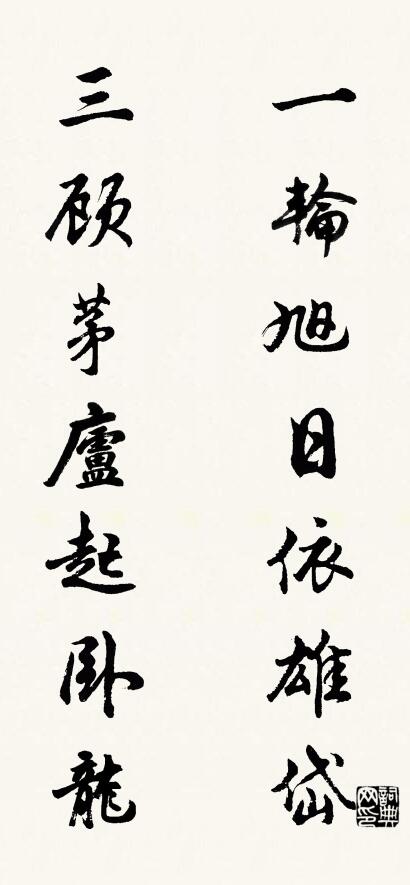 一輪旭日依雄岱
三顾茅廬起卧龍
詞典网印